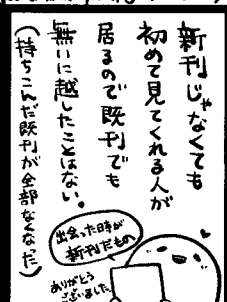 新刊じゃなくても
初めて見てくれる人が
居るので既刊でも
無いに越したことはない。
(持ちこんだ既刊が全部なくなった)
出会った時が
新刊だもの
ありがとう
ございました